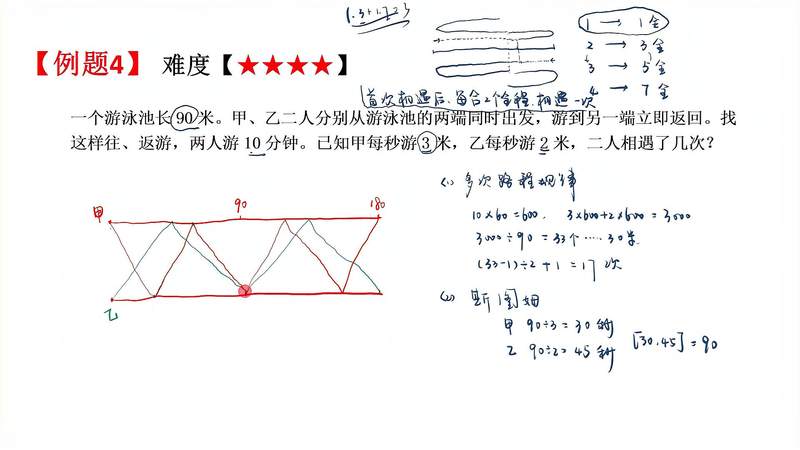 1.3+1.7=3
1 → 1全
2 → 3全
3 → 5全
4 → 7全
【例题4】 难度【★★★★】
首次相遇后,每合2个全程,相遇一次
一个游泳池长90米。甲、乙二人分别从游泳池的两端同时出发，游到另一端立即返回。找
这样往、返游，两人游10分钟。已知甲每秒游3米，乙每秒游2米，二人相遇了几次？
(1) 多次路程规律
10×60=600. 3×600+2×600=3000
3000÷90=33个……30米
(33-1)÷2+1=17次
甲 90 180
乙
(2) 斯图姆
甲 90÷3=30秒
乙 90÷2=45秒 [30,45]=90